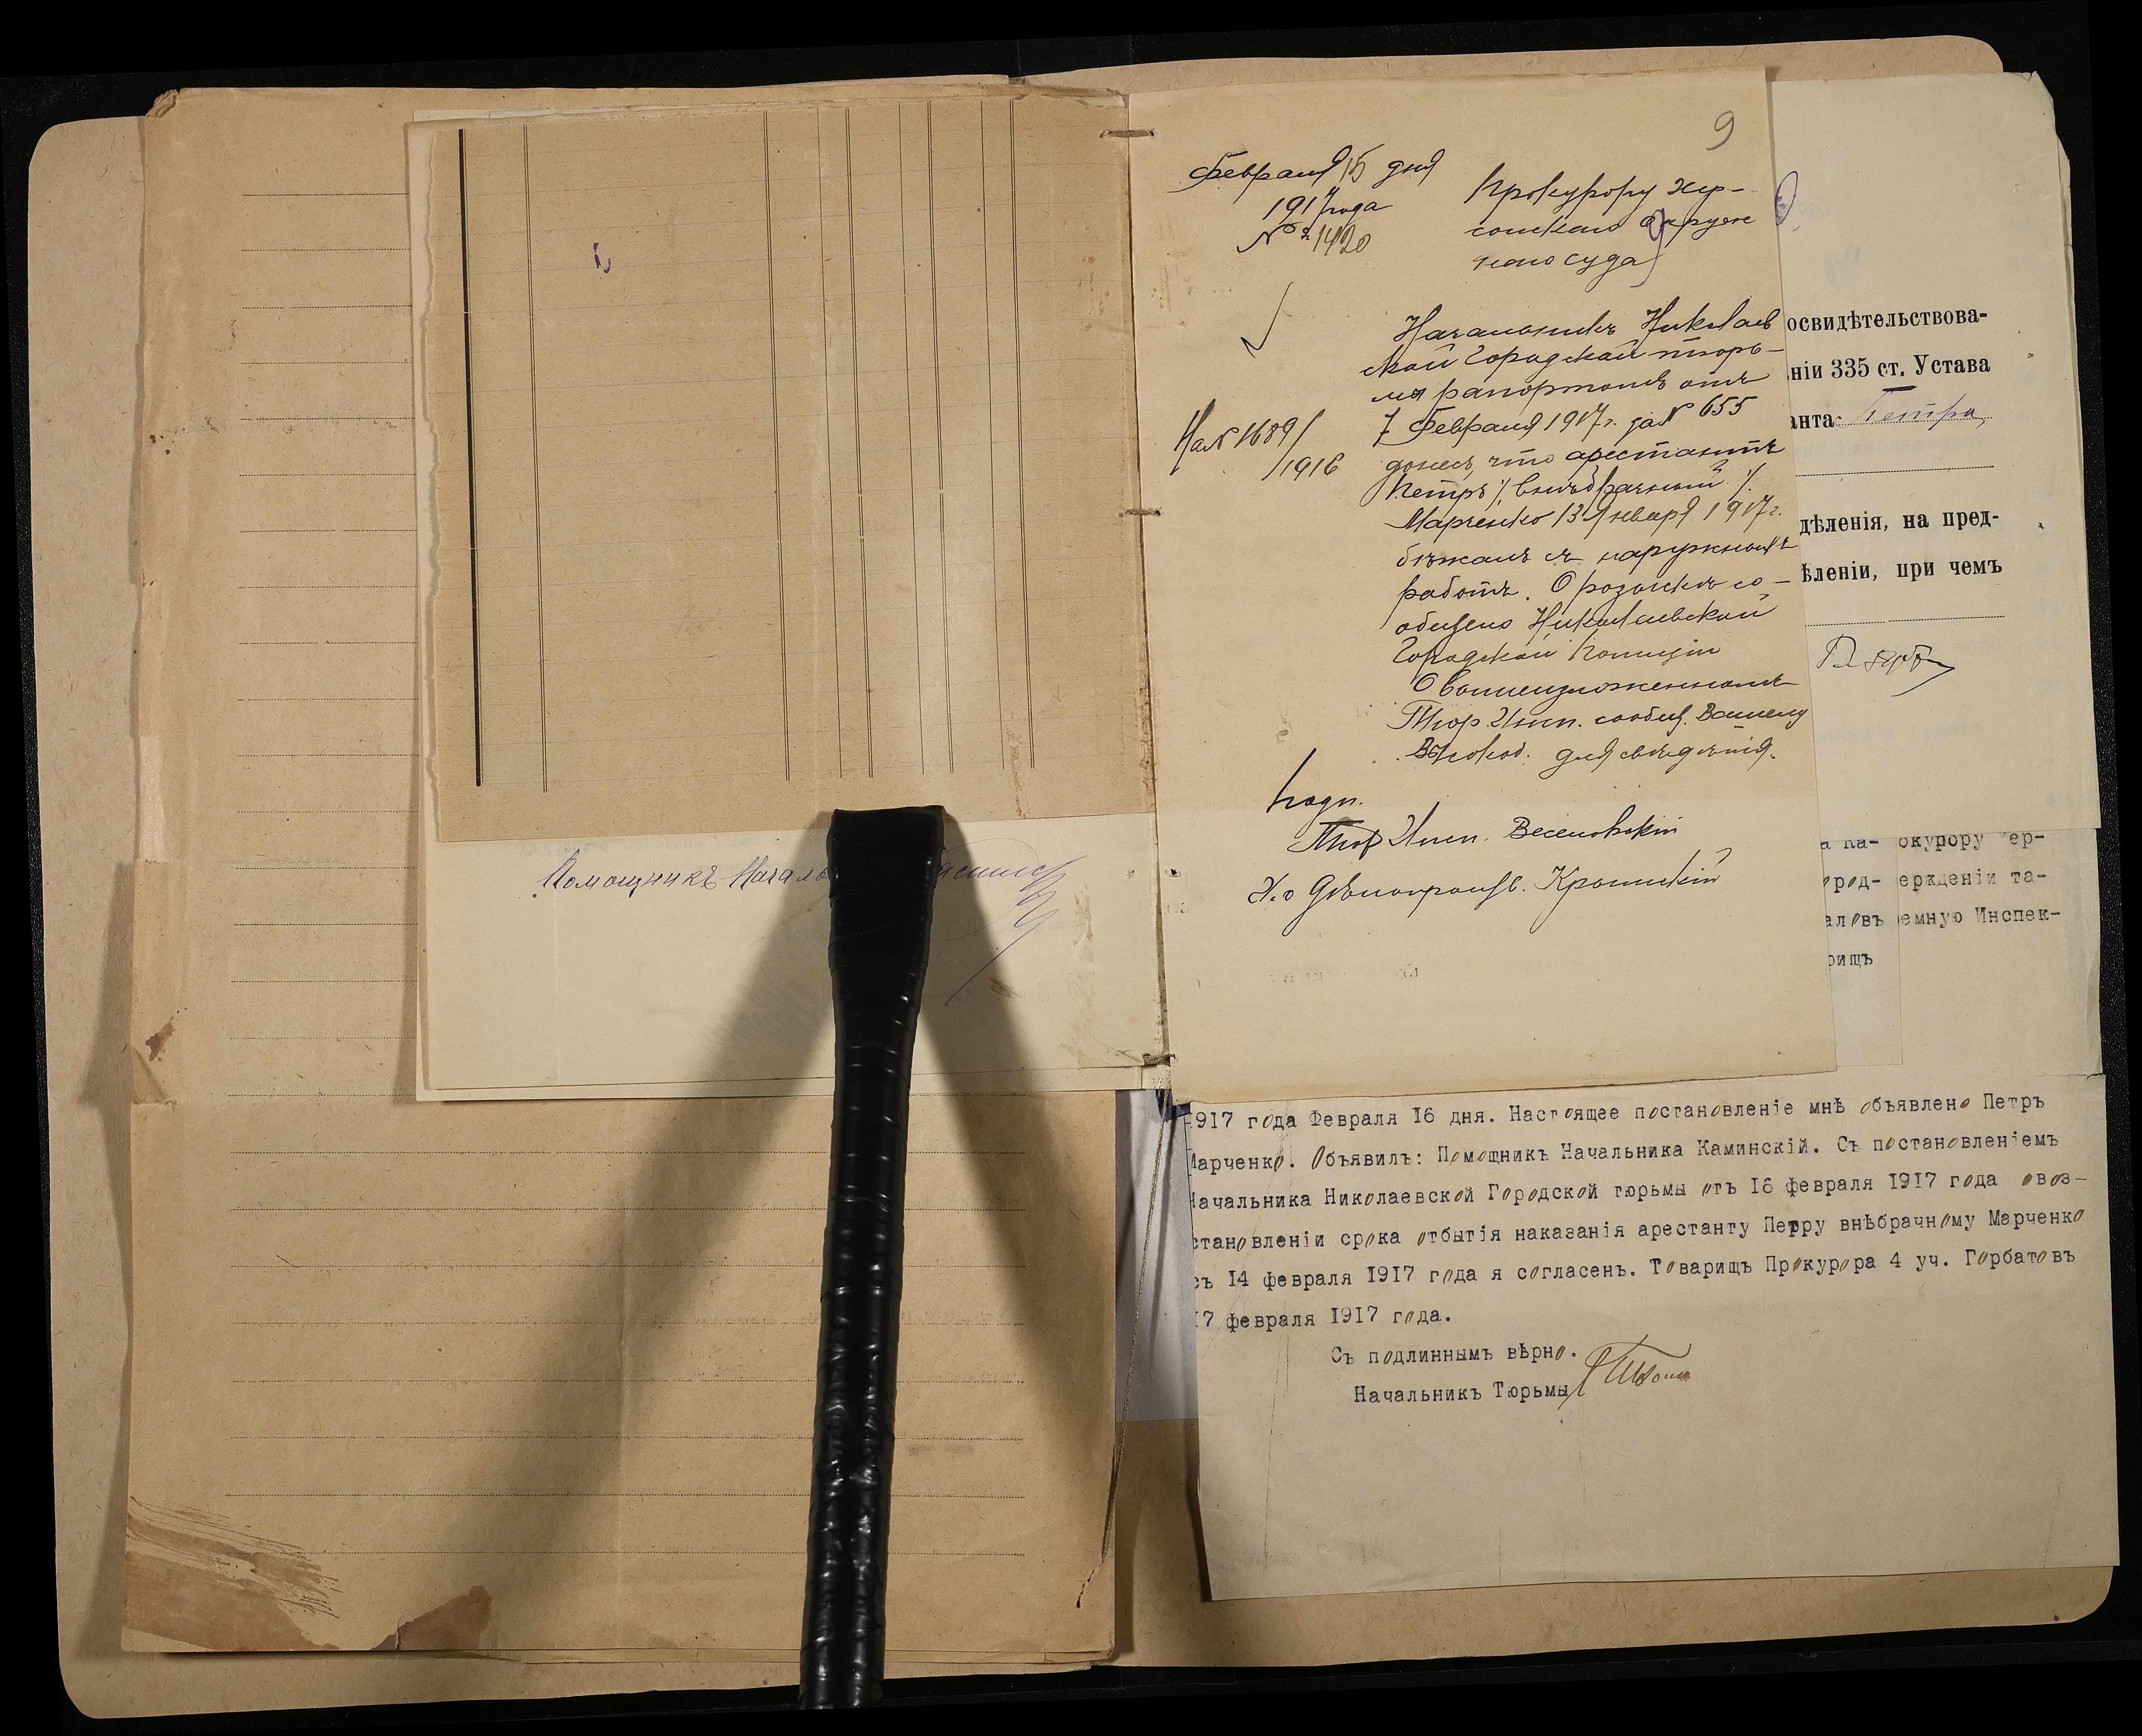 Помощникъ Начальн
9
Февраля 15 дня
1917 года
№ 1420
Прокурору Хер-
сонскаго Окруж
наго суда
Начальникъ Николаев
ской Городской тюрь-
мы рапортомъ отъ
7 Февраля 1917 г. за № 655
донесъ, что арестантъ
Петръ /внѣбрачный/
Марченко 13 Января 1917 г.
бѣжалъ съ наружныхъ
работъ. О розыскѣ со-
общено Николаевской
Городской Полиціи
О вышеизложенномъ
Тюр. Инсп. сообщ. Вашему
Высокод. для свѣдѣнія.
На № 1689/
/1916
подп.
Тюр Инсп. Веселовскій
И.о Дѣлопроизв. Кропискій
освидѣтельствова-
ніи 335 ст. Устава
анта Петра
дѣленія, на пред-
ѣленіи, при чемъ
а Ка-
ород-
аловъ
рищъ
окурору Хер-
ержденіи та-
емную Инспек-
1917 года Февраля 16 дня. Настоящее постановленіе мнѣ объявлено Петръ
Марченко. Объявилъ: Помощникъ Начальника Каминскій. Съ постановленіемъ
Начальника Николаевской Городской тюрьмы отъ 16 февраля 1917 года овоз-
становленіи срока отбытія наказанія арестанту Петру внѣбрачному Марченко
съ 14 февраля 1917 года я согласенъ. Товарищъ Прокурора 4 уч. Горбатовъ
17 февраля 1917 года.
Съ подлиннымъ вѣрно.
Начальникъ Тюрьмы